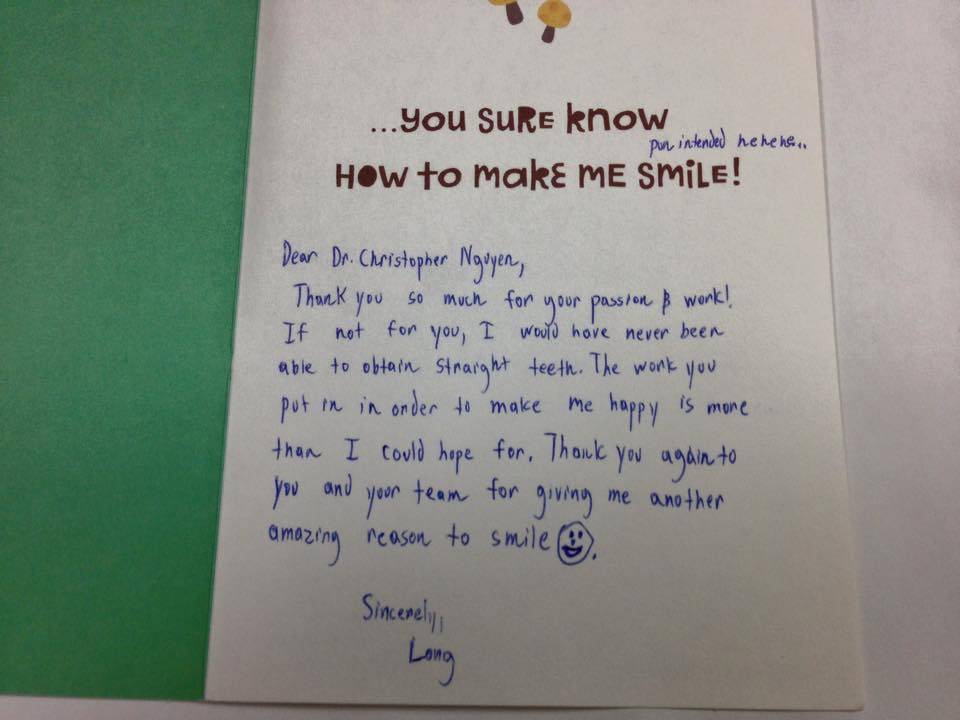 ...you sure know
pun intended hehehe...
how to make me smile!
Dear Dr. Christopher Nguyen,
Thank you so much for your passion & work!
If not for you, I would have never been
able to obtain straight teeth. The work you
put in in order to make me happy is more
than I could hope for. Thank you again to
you and your team for giving me another
amazing reason to smile.
Sincerely,
Long